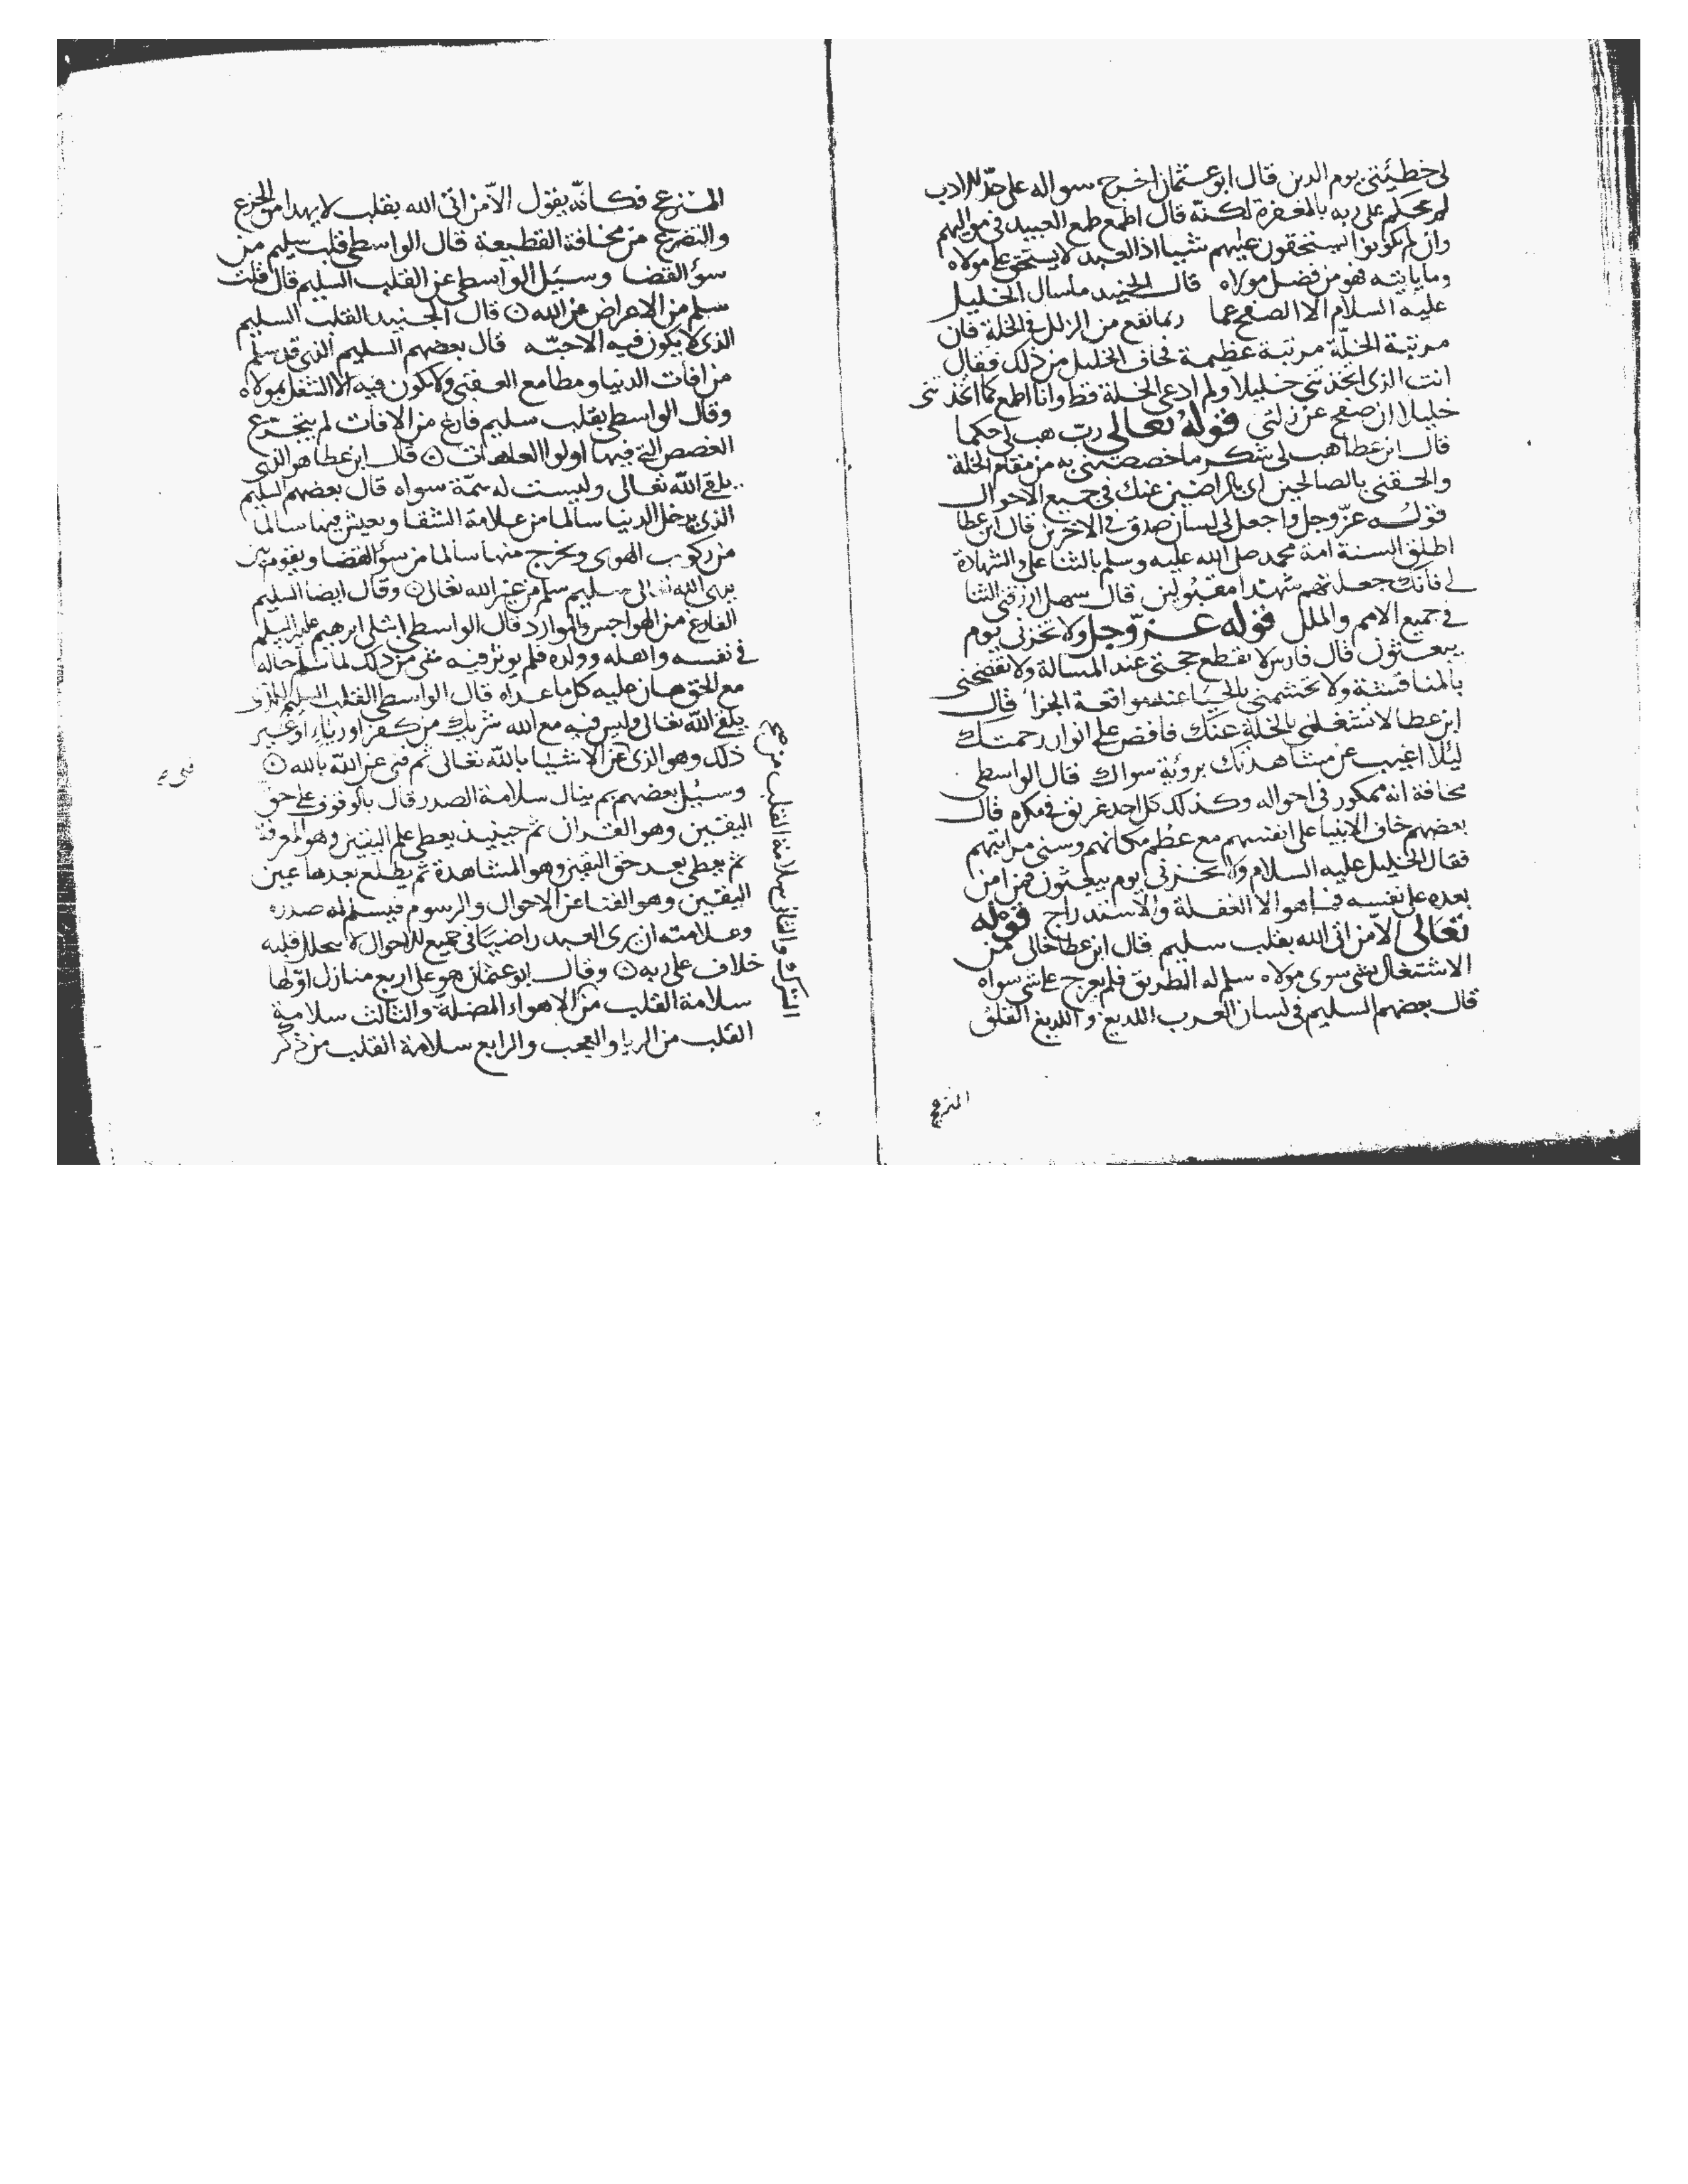 لى خطيئتى يوم الدين قال ابو عثمان اخرج سواله على حدّ الادب
لم يحكم على ربه بالمغفرة لكنّه قال اطمع طمع العبيد فى مواليهم
وان لم يكونوا يستحقون عليهم شيئا اذ العبد لا يستحق على مولاه
وما ياتيه فهو من فضل مولاه قال الجنيد ما سال الخليل
عليه السلام الا الصفح عما ربما تقع من الزلل فى الخلة فان
مرتبة الخلّة مرتبة عظيمة فخاف الخليل من ذلك فقال
انت الذى اتخذتنى خليلا ولم ادعى الخلة قط وانا اطمع كما اتخذتنى
خليلا ان صفح عن زلتى قوله تعالى رب هب لى حكما
قال ابن عطا هب لى شكر ما خصصتنى به من مقام الخلة
والحقنى بالصالحين اى بالراضين عنك فى جميع الاحوال
قوله عزّ وجل واجعل لى لسان صدق فى الاخرين قال ابن عطا
اطلق السنة امة محمد صلى الله عليه وسلم بالثنا على والشهادة
لى فانك جعلتهم شهدا مقبولين قال سهل ارزقنى الثنا
فى جميع الامم والملل قوله عزّ وجل ولا تخزنى يوم
يبعثون قال فارس لا تقطع حجتى عند المسالة ولا تفضحنى
بالمناقشة ولا تحشمنى بالحيا عند مواقعة الجزا قال
ابن عطا لا تشغلنى بالخلة عنك فافض على انوار رحمتك
ليلا اغيب عن مشاهدتك بروية سواك قال الواسطى
مخافة انه ممكور فى احواله وكذلك كل احد غريق فى مكره قال
بعضهم خاف الانبيا على انفسهم مع عظم مكانهم وسنى مراتبهم
فقال الخليل عليه السلام ولا تخزنى يوم يبعثون فمن امن
بعده على نفسه فما هو الا الغفلة والاستدراج قوله
تعالى الا من اتى الله بقلب سليم قال ابن عطا خالى من
الاشتغال بشى سوى مولاه سلم له الطريق فلم يعرج على شى سواه
قال بعضهم السليم فى لسان العرب اللديغ واللديغ القلق
المنزعج
المنزعج فكانّه يقول الا من اتى الله بقلب لا يهدا من الجزع
والتضرع من مخافة القطيعة قال الواسطى قلب سليم من
سوء القضا وسئل الواسطى عن القلب السليم قال قلت
سلم من الاعراض عن الله قال الجنيد القلب السليم
الذى لا يكون فيه الا حبّه قال بعضهم السليم الذى قد سلم
من افات الدنيا ومطامع العقبى ولا يكون فيه الا الشغل بمولاه
وقال الواسطى بقلب سليم فارغ من الافات لم يتجرع
الغصص التى فيها اولوا العاهات قال ابن عطا هو الذى
يلقى الله تعالى وليست له همّة سواه قال بعضهم السليم
الذى يدخل الدنيا سالما من علامة الشقا ويعيش فيها سالما
من ركوب الهوى ويخرج منها سالما من سوء القضا ويقوم بين
يدى الله تعالى سليم سلم من غير الله تعالى وقال ايضا السليم
الفارغ من الهواجس والموارد قال الواسطى ابتلى ابرهيم عليه السلم
فى نفسه واهله وولده فلم يوثر فيه شى من ذلك لما سلم حاله
مع الحق هان عليه كل ما عداه قال الواسطى القلب السليم الذى
يلقى الله تعالى وليس فيه مع الله شريك من كفر او رياء او غير
ذلك وهو الذى عن الاشيا بالله تعالى ثم فنى عن الله بالله
وسئل بعضهم بم ينال سلامة الصدر قال بالوقوف على حق
اليقين وهو القران ثم حينيذ يعطى علم اليقين وهو المعرفة
ثم يعطى بعد حق اليقين وهو المشاهدة ثم يطلع بعدها عين
اليقين وهو الفنا عن الاحوال والرسوم فيسلم له صدره
وعلامته ان يرى العبد راضيا فى جميع الاحوال لا قلبه
خلاف على ربه وقال ابو عثمان هو على اربع منازل اوّلها
سلامة القلب من الاهواء المضلة والثالث سلامة
القلب من الريا والعجب والرابع سلامة القلب من ذكر
الشرك والثانى سلامة القلب من صح